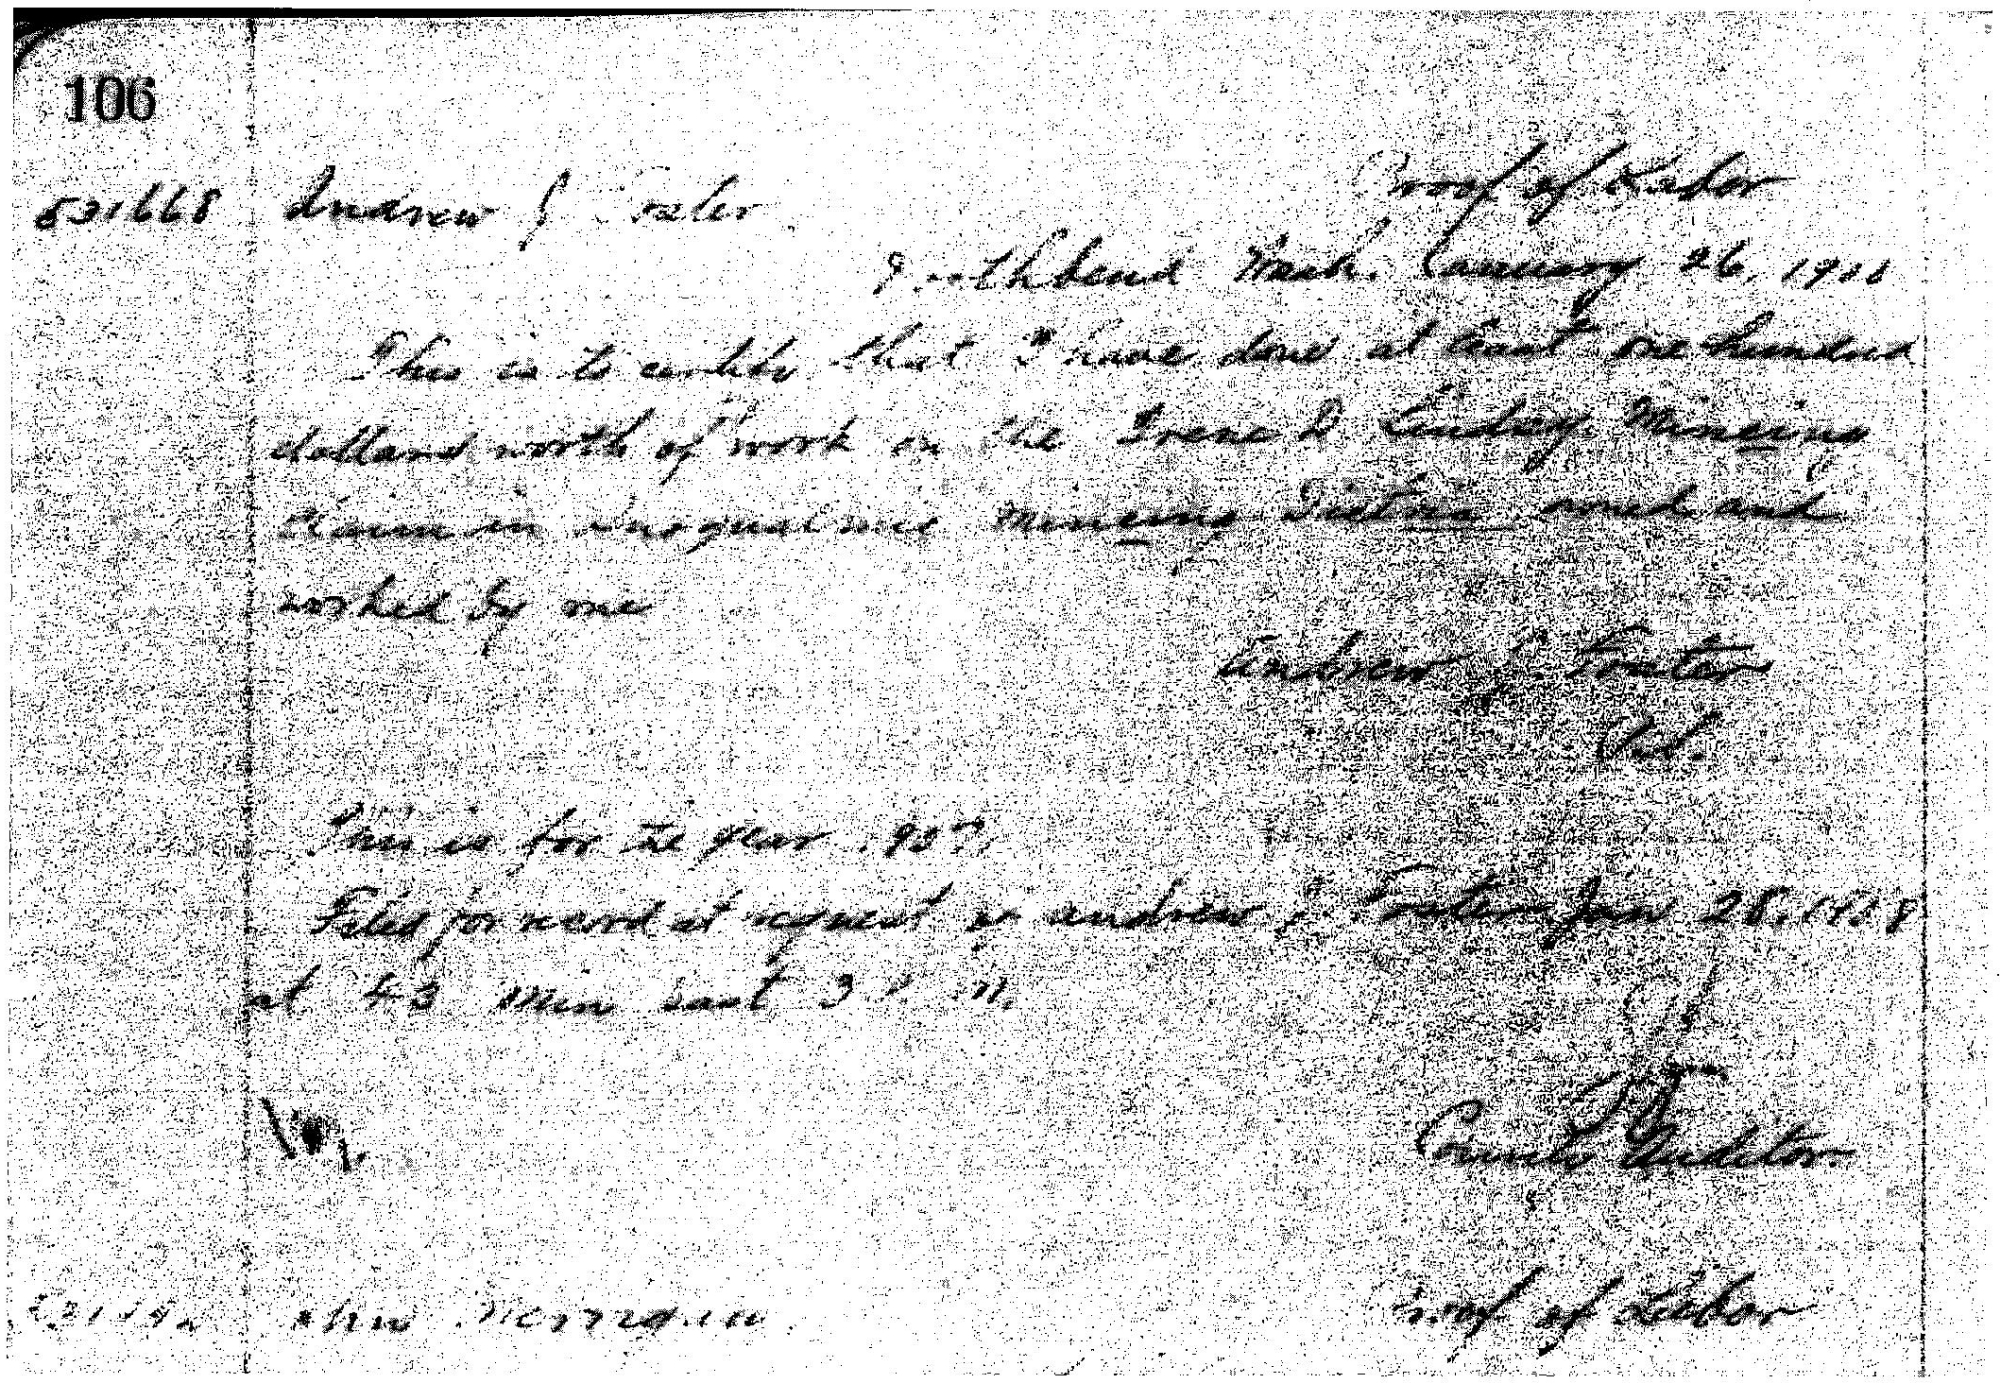 106
Proof of Labor
531668 Andrew J Foster
Northbend Wash. January 26, 1908
This is to certify that I have done at least one hundred
dollars worth of work on the Irene D Lindsay Mineing
Claim in Snoqualmie Mineing District owned and
worked by me
Andrew J. Foster
This is for the year 1907.
Filed for record at request of Andrew J. Foster Jan 28, 1908
at 43 Min past 3 P. M.
County Auditor.
John
Proof of Labor